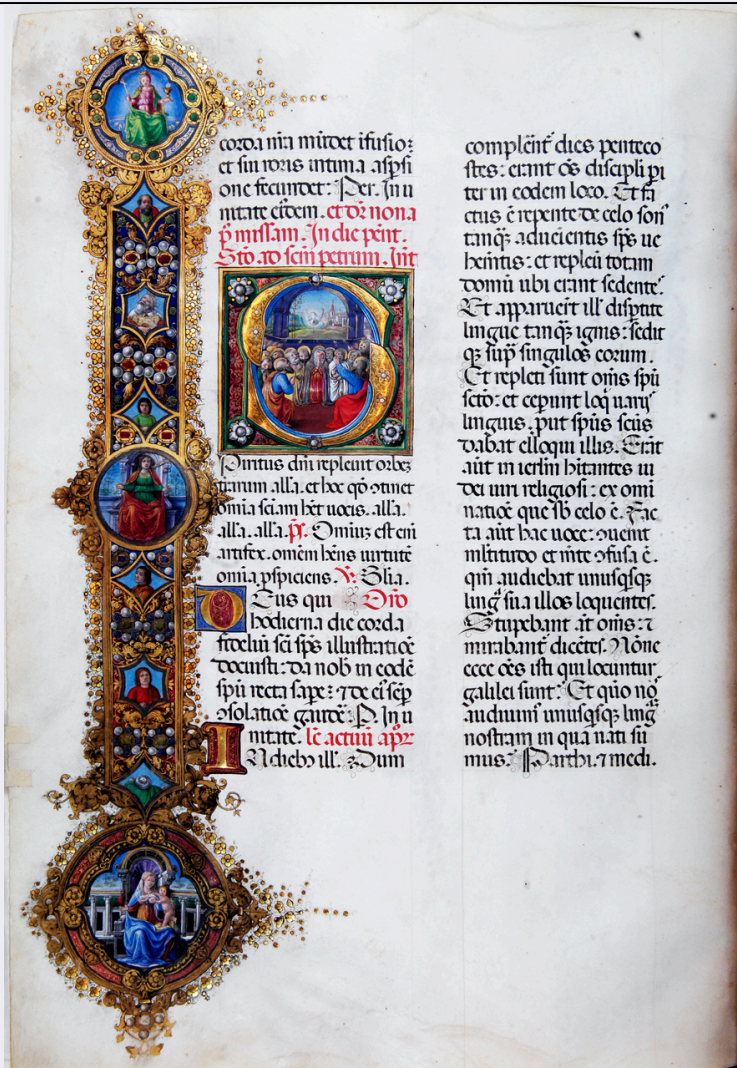 corda nr̄a mūdet ifusioꝫ
et sui roris intima asp̄si
one fecundet: Per. In u
nitate eiꝰdem. et dr̄ nona
p̄ missam. In die pent.
Stō. ad scm̄ petrum. Int̄
S
Piritus dn̄i repleuit orbeꝫ
terrarum all'a. et hoc qō ↄtinet
omnia sciam het uocis. all'a.
all'a. all'a. ps̄. Omniuꝫ est eni
artifex. omnem hn̄s uirtutē
omnia p̄spiciens. V. Glīa.
DEus qui Orō
hodierna die corda
fidelíū sc̄i sp̄s illustratiōe
docuisti: da nob̄ in eodē
sp̄u recta sape: ⁊ de eiꝰ sēp
ↄsolatiōe gaudē: P. In u
nitate. lc̄ actuū ap̄lꝝ
IN diebꝫ ill'. Dum
complerēt dies penteco
stes: erant oēs discipli pi
ter in eodem loco. Et fa
ctus ē repente de celo son'
tanq̄ꝫ aduenientis sp̄s ue
hemētis: et repleū totam
domū ubi erant sedenteˢ.
Et apparuert̄ ill' disptite
lingue tanq̄ꝫ ignis: sedit
qꝫ sup̄ singulos eorum.
Et repleti sunt om̄s sp̄u
scto: et ceperunt loq̄ uariꝭ
linguis, put sp̄us sc̄us
dabat elloqui illis. Erāt
aūt in ierl̄m hitantes iu
dei uiri religiosi: ex omi
natiōe que sb̄ celo ē. Fac
ta aūt hac uoce: ↄuenit
ml̄titudo et mēte ↄfusa ē.
qm̄ audiebat unusqsqꝫ
ling' sua illos loquentes.
Stupebant āt om̄s: ⁊
mirabant̄ dicētes. Nōne
ecce oēs isti qui locuntur
galilei sunt: Et quō nos
audiuimꝰ unusqsqꝫ ling'
nostram in qua nati su
mus: Parthi. ⁊ medi.